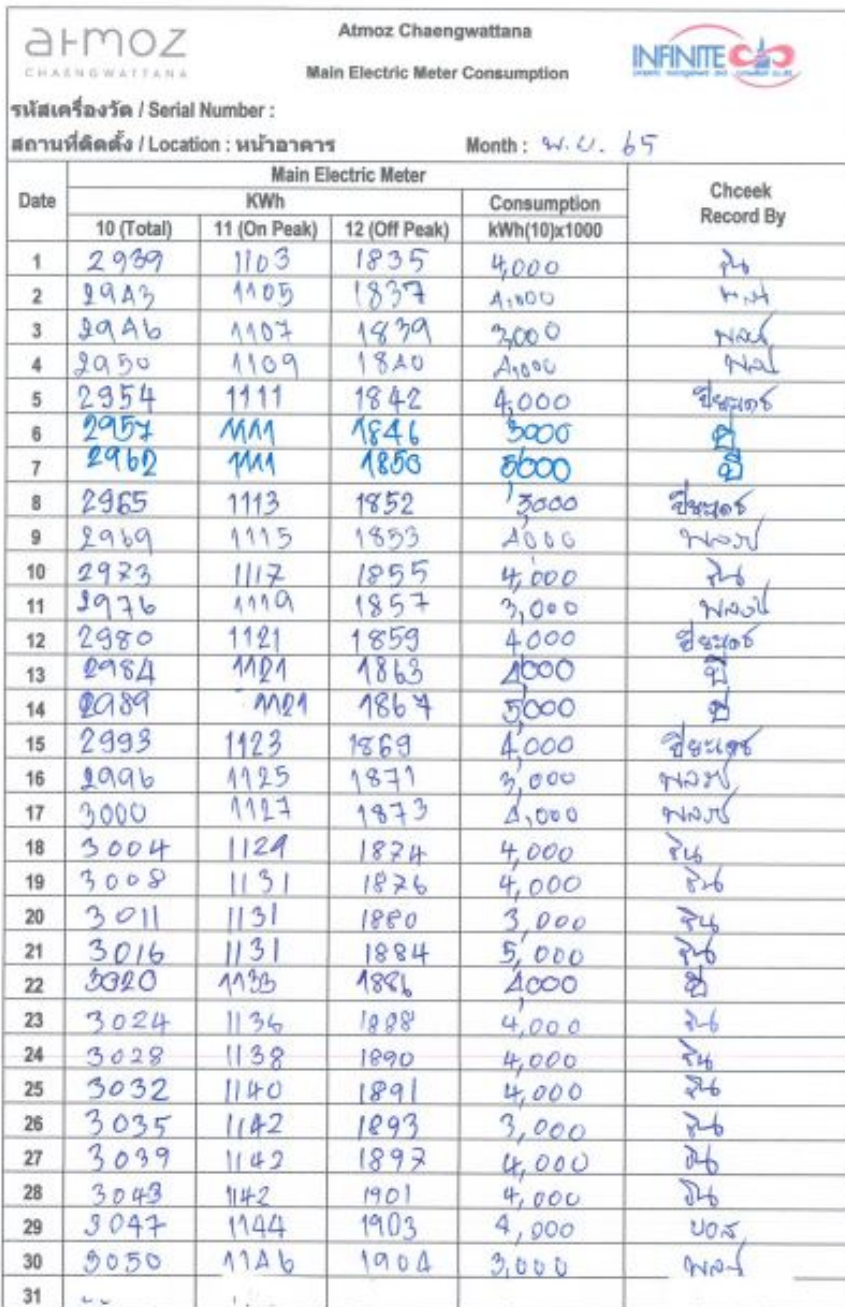 atmoz
CHAENGWATTANA
Atmoz Chaengwattana
Main Electric Meter Consumption
INFINITE
รหัสเครื่องวัด / Serial Number :
สถานที่ติดตั้ง / Location : หน้าอาคาร Month : พ.ย. 65
Date Main Electric Meter Chceek Record By
KWh Consumption
10 (Total) 11 (On Peak) 12 (Off Peak) kWh(10)x1000
1 2939 1103 1835 4,000
2 2943 1105 1837 4,000
3 2946 1107 1839 3,000
4 2950 1109 1840 4,000
5 2954 1111 1842 4,000 ปิยะเดช
6 2957 1111 1846 3000
7 2962 1111 1850 5000
8 2965 1113 1852 3000 ปิยะเดช
9 2969 1115 1853 4000
10 2973 1117 1855 4,000
11 2976 1119 1857 3,000
12 2980 1121 1859 4000 ปิยะเดช
13 2984 1121 1863 4000
14 2989 1121 1867 5000
15 2993 1123 1869 4,000 ปิยะเดช
16 2996 1125 1871 3,000
17 3000 1127 1873 4,000
18 3004 1129 1874 4,000
19 3008 1131 1876 4,000
20 3011 1131 1880 3,000
21 3016 1131 1884 5,000
22 3020 1133 1886 4000
23 3024 1136 1888 4,000
24 3028 1138 1890 4,000
25 3032 1140 1891 4,000
26 3035 1142 1893 3,000
27 3039 1142 1897 4,000
28 3043 1142 1901 4,000
29 3047 1144 1903 4,000 บอส
30 3050 1146 1904 3,000
31